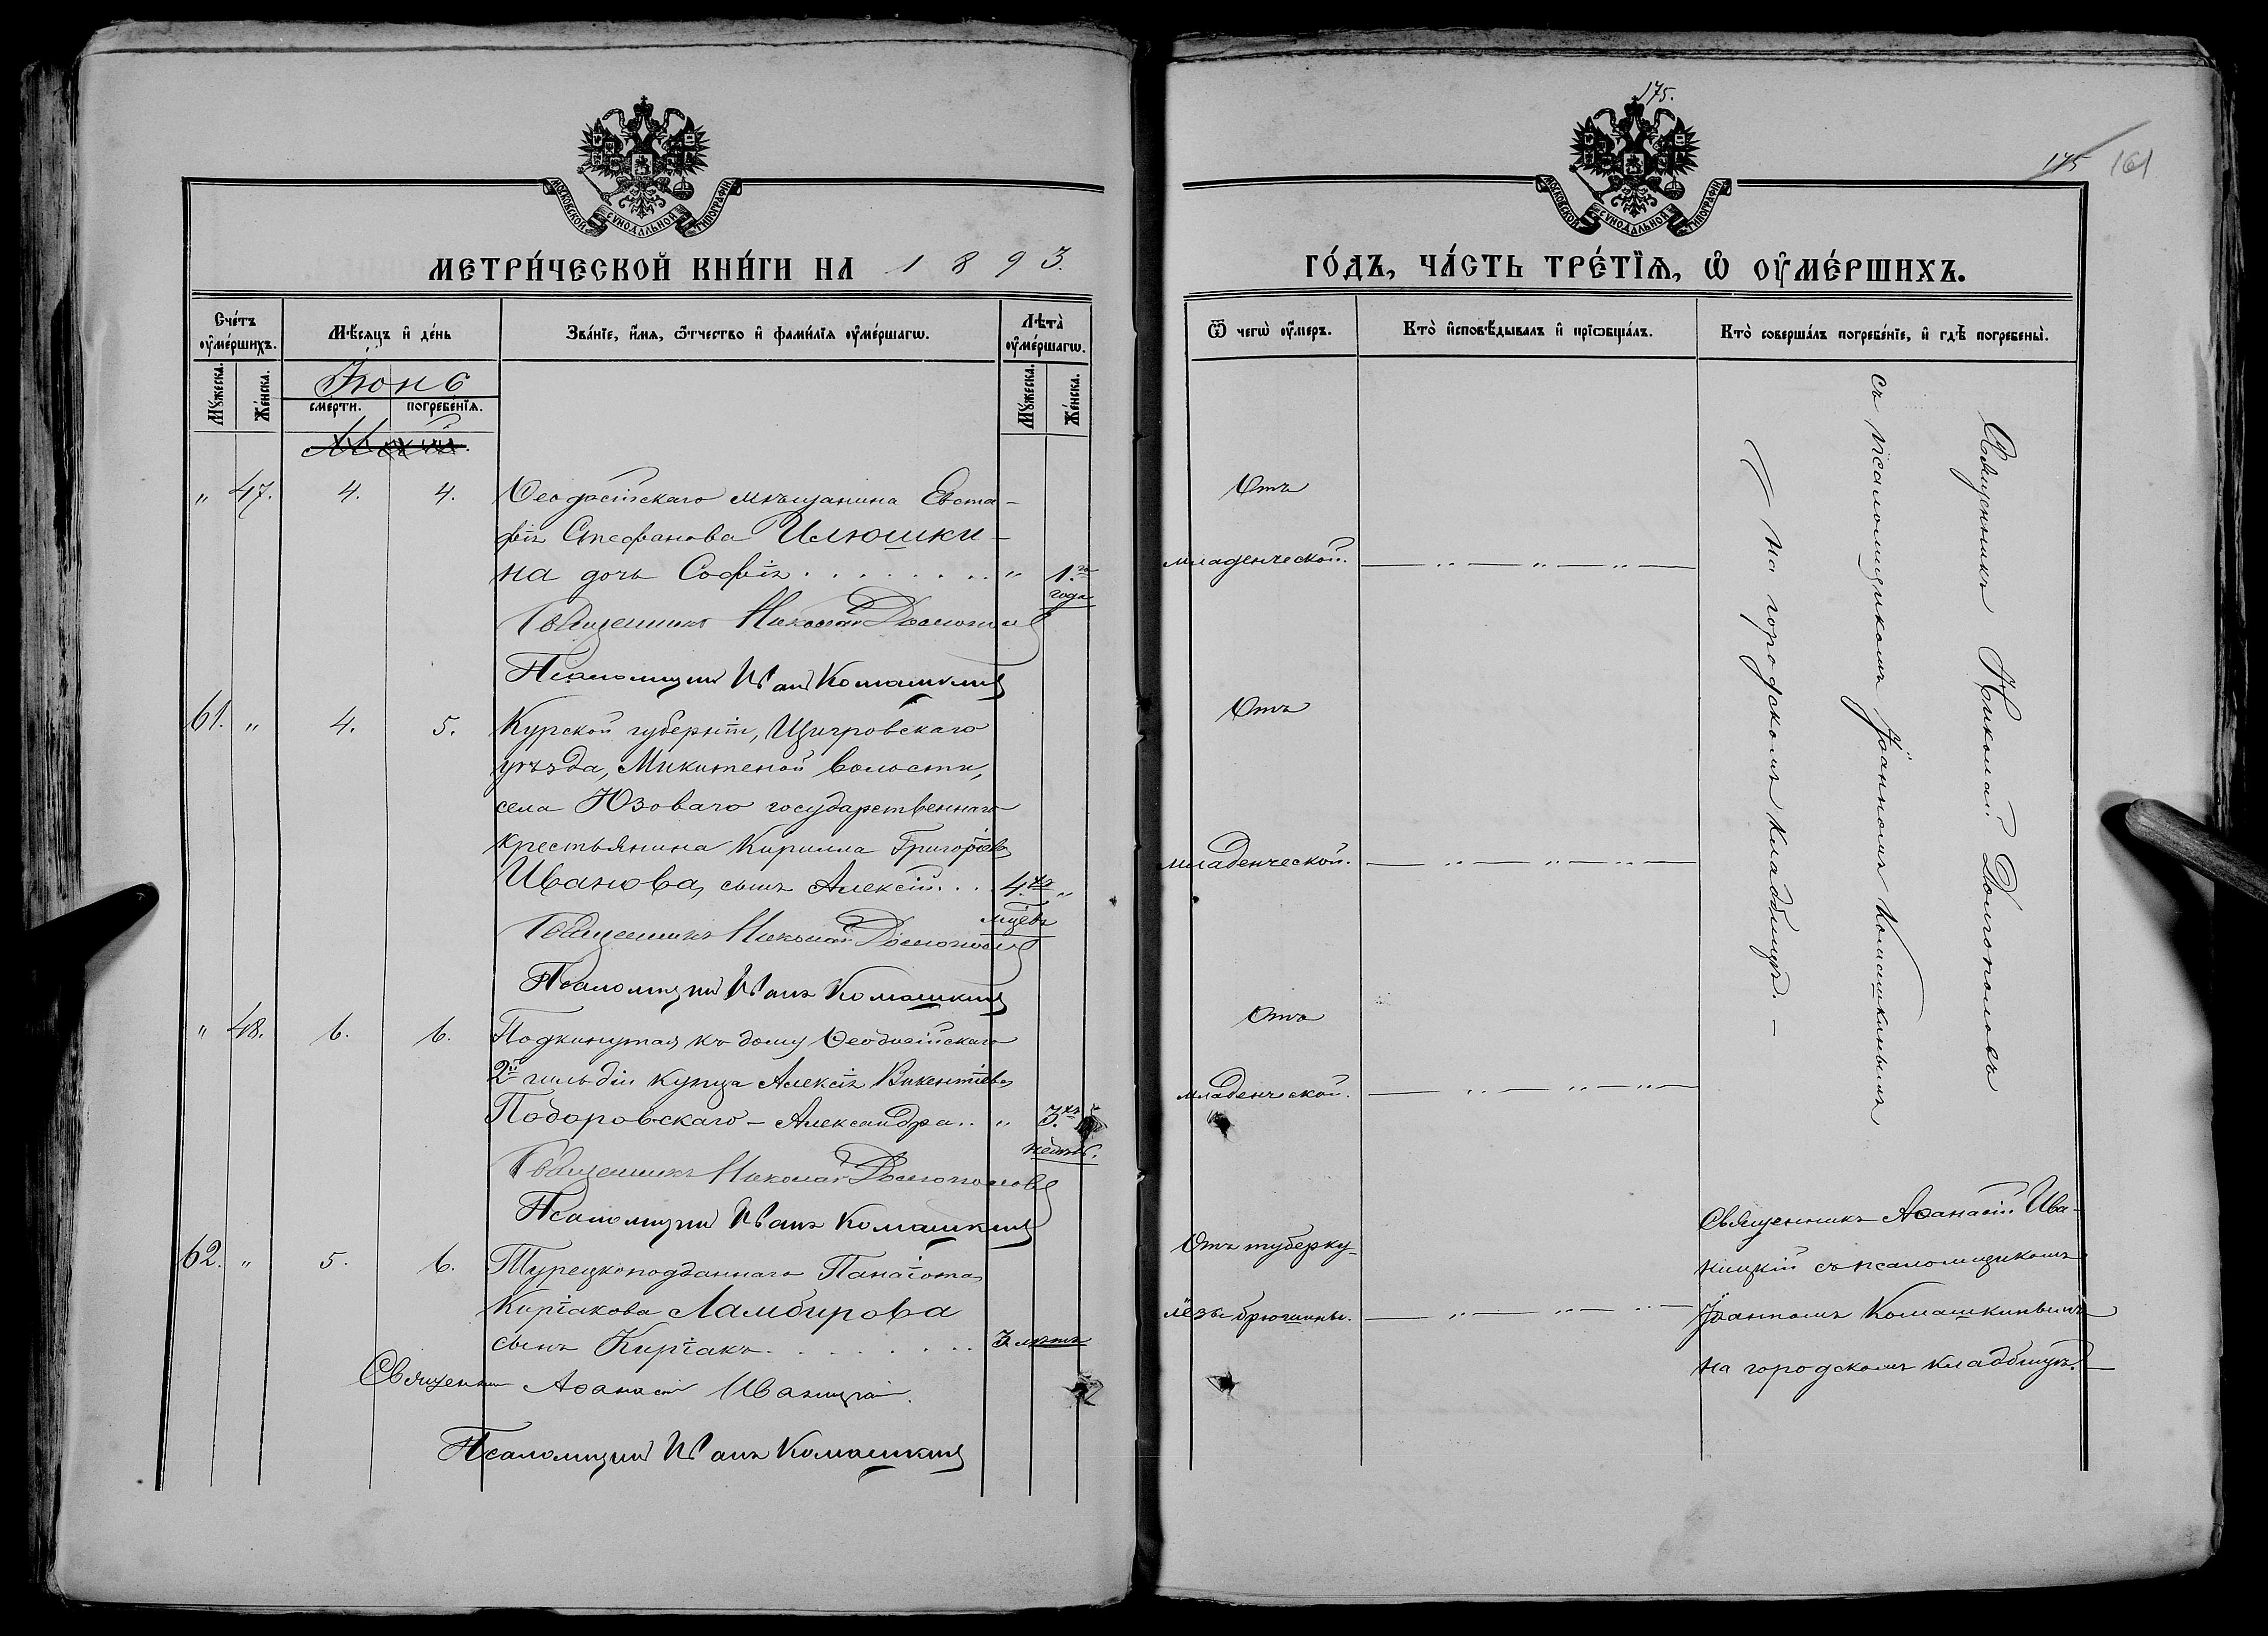 МОСКОВСКОЙ СѴНОДАЛЬНОЙ ТИПОГРАФІИ
МЕТРИ́ЧЕСКОЙ КНИ́ГИ НА 1893.
Сче́тъ ᲂу҆ме́ршихъ.
Мѣ́сяцъ и҆ де́нь
Зва́нїе, и҆́мя, ѻ҆́тчество и҆ фами́лїя ᲂу҆ме́ршагѡ.
Лѣта̀ ᲂу҆ме́ршагѡ.
Мꙋ́жеска.
Же́нска.
Іюнь
сме́рти.
погребе́нїя.
Мꙋ́жеска.
Же́нска.
Май.
" 47. 4. 4. Ѳеодосійскаго мѣщанина Евста-
фія Стефанова Илюшки-
на дочь Софія . . . . . . . . " 1.го
года
Священникъ Николай Долгополовъ
Псаломщикъ Иванъ Комашкинъ
61. " 4. 5. Курской губерніи, Щигровскаго
уѣзда, Микитеной волости,
села Юзоваго государственнаго
крестьянина Кирилла Григоріева
Иванова, сынъ Алексій . . 4.хъ "
мцѣвъ
Священникъ Николай Долгополовъ
Псаломщикъ Иванъ Комашкинъ
" 48. 6. 6. Подкинутая къ дому Ѳеодосійскаго
2й гильдіи купца Алексія Викентіева
Подоровскаго - Александра . . " 3.хъ
недѣль.
Священникъ Николай Долгополовъ
Псаломщикъ Иванъ Комашкинъ
62. " 5. 6. Турецкоподданнаго Панаіота
Киріакова Ламбирова
сынъ Киріакъ . . . . . . . . 3 лѣтъ
Священникъ Аѳанасій Иваницкій.
Псаломщикъ Иванъ Комашкинъ
175.
175 161
МОСКОВСКОЙ СѴНОДАЛЬНОЙ ТИПОГРАФІИ
ГО́ДЪ, ЧА́СТЬ ТРЕ́ТЇЯ, Ѽ ОУ҆МЕ́РШИХЪ.
Ѿ чегѡ̀ ᲂу҆́меръ.
Кто̀ и҆сповѣ́дывалъ и҆ прїѡбща́лъ.
Кто̀ соверша́лъ погребе́нїе, и҆ гдѣ̀ погребены̀.
Отъ
младенческой. — " — " — " —
Отъ
младенческой. — " — " — " —
Отъ
младенческой. — " — " — " —
Отъ туберку-
лёзы брюшины. — " — " — " —
Священникъ Николай Долгополовъ
съ псаломщикомъ Іоанномъ Комашкинымъ
на городскомъ кладбищѣ. —
Священникъ Аѳанасій Ива-
ницкій съ псаломщикомъ
Іоанномъ Комашкинымъ
на городскомъ кладбищѣ. —